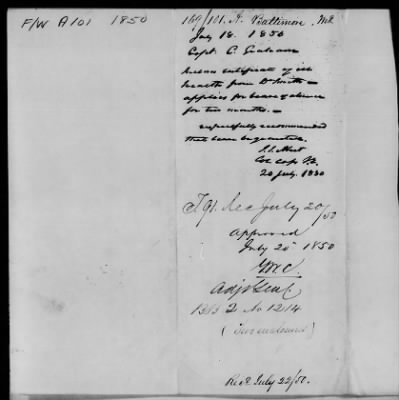 F/W A101 1850
169/101. A. Baltimore, Md
July 18. 1850
Capt. C. Graham
certificate of ill
health from Dr Smith –
applies for leave of absence
for two months. –
respectfully recommended
that leave be granted.
J. J. Abert
Col corps T.E.
20 July. 1850
Rec July 20/50
Approved
July 20 1850
Adjt Genl
No 1214
(Two enclosures)
Recd July 22/50.